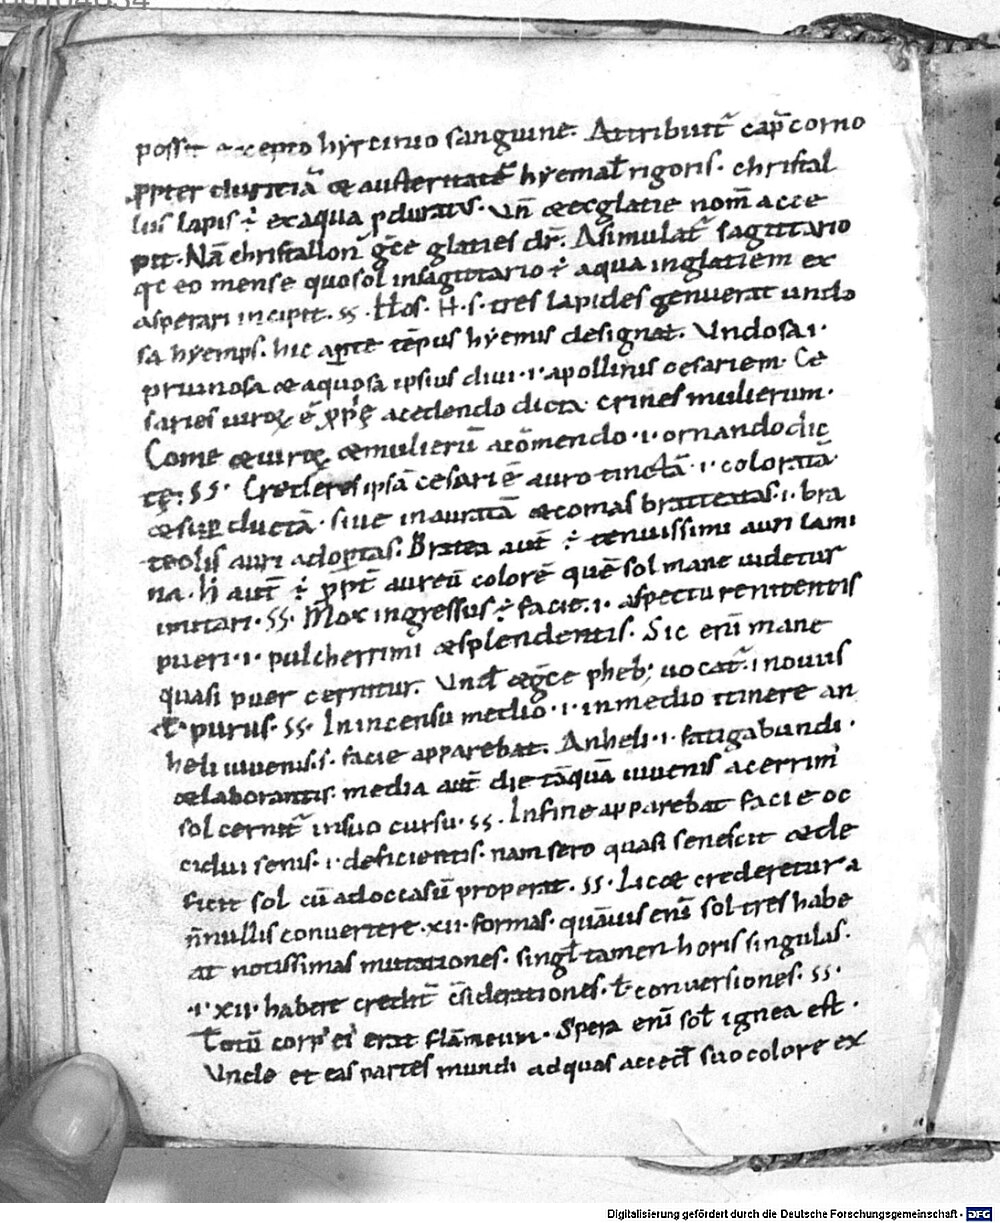 possit accepto hyrcino sanguine. Attribuit᷑ cap̄corno
ꝓpter duriciā & austeritatē hyemal̄ rigoris. christal
lus lapis ÷ exaqua ꝑduratus. Vn̄ & exglatie nom̄ acce
pit. Nā christallon gͨce glaties dr̄. Asimulat᷑ sagittario
qͥ eo mense quo sol insagittario ÷ aqua inglatiem ex
asperari incipit. ss. Hos. H. s. tres lapides genuerat undo
sa hyemps. hic aꝑte tēpus hyemis designat. Vndosa .i.
pruinosa & aquosa ipsius diui .i. apollinis cesariem. Ce
saries uiroꝝ ē acedendo dicta. crines mulierum.
Come & uiroꝝ & mulierū acōmendo .i. ornando dic
tę. ss. Crederes ipsā cesariē auro tinctā .i. coloratā.
& suꝑ ductā. siue inauratā & comas bratteatas .i. bra
teolis auri adoꝑtas. Bratea aut̄ ÷ tenuissimi auri lami
na. aut̄ ÷ aureū colorē quē sol mane uidetur
imitari. ss. Mox ingressus ÷ facie .i. aspectu renitentis
pueri .i. pulcherrimi & splendentis. Sic enī mane
quasi puer cernitur. Vnd̄ & gͨce pheb; uocat᷑ .i nouus
ł purus. ss. In incensu medio .i. inmedio itinere an
heli iuuenis .s. facie apparebat. Anheli .i. fatigabundi.
& laborantis. media aut̄ die tāquā iuuenis acerrim᷒
sol cernit᷑ insuo cursu. ss. Infine apparebat facie oc
cidui senis .i. deficientis. nam sero quasi senescit & de
ficit sol cū adoccasū properat. ss. Licet crederetur a
n̄nullis conuertere .xii. formas. quāuis enī sol tres habe
at notissimas mutationes. singl̄ tamen horis singulas.
.i. xii. habere credit᷑ c̄siderationes. ł conuersiones. ss.
Totū corp᷒ ei᷒ erat flāmeum. Spera enī sol̄ ignea est.
Vnde et eas partes mundi adquas acced̄ suo colore ex
Digitalisierung gefördert durch die Deutsche Forschungsgemeinschaft - DFG